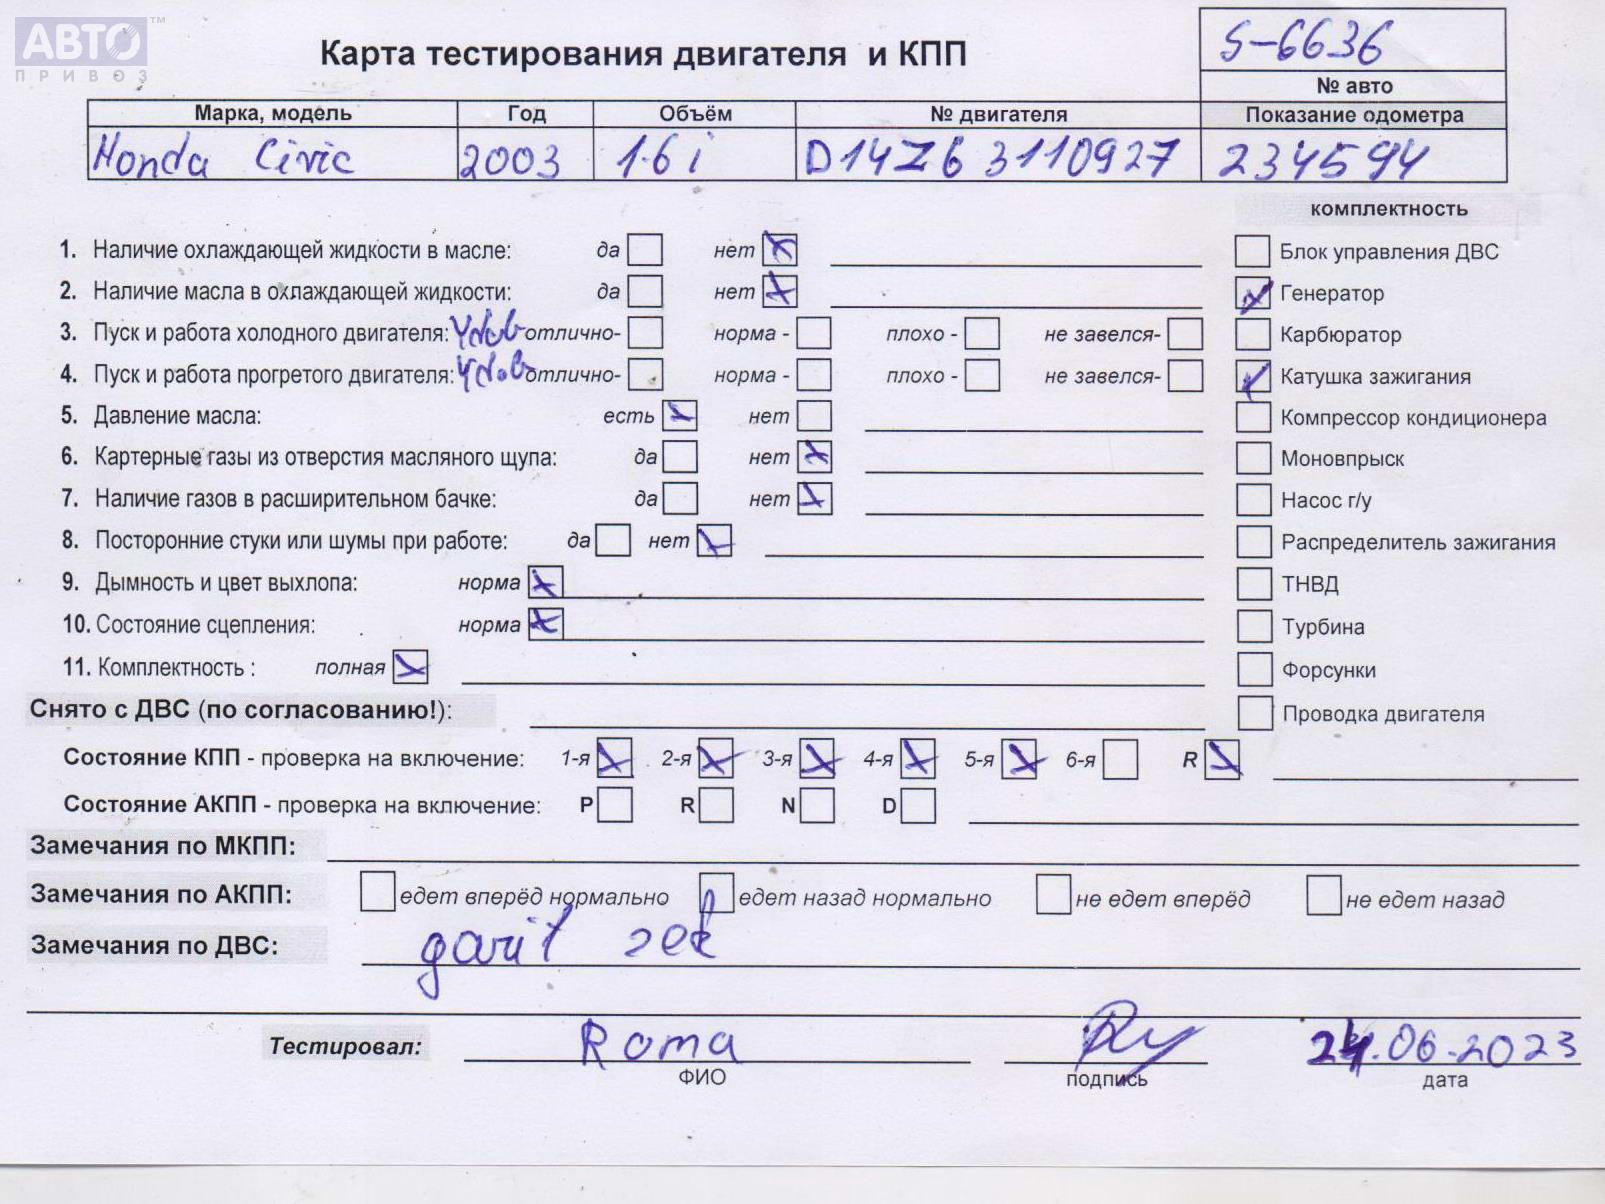 АВТО™
ПРИВОЗ
Карта тестирования двигателя и КПП
S-6636
№ авто
Марка, модель Год Объём № двигателя Показание одометра
Honda Civic 2003 1.6i D14Z6 3110927 234594
комплектность
1. Наличие охлаждающей жидкости в масле: да нет
Блок управления ДВС
2. Наличие масла в охлаждающей жидкости: да нет
Генератор
3. Пуск и работа холодного двигателя: отлично- норма - плохо - не завелся-
Карбюратор
4. Пуск и работа прогретого двигателя: отлично- норма - плохо - не завелся-
Катушка зажигания
5. Давление масла: есть нет
Компрессор кондиционера
6. Картерные газы из отверстия масляного щупа: да нет
Моновпрыск
7. Наличие газов в расширительном бачке: да нет
Насос г/у
8. Посторонние стуки или шумы при работе: да нет
Распределитель зажигания
9. Дымность и цвет выхлопа: норма
ТНВД
10. Состояние сцепления: норма
Турбина
11. Комплектность : полная
Форсунки
Снято с ДВС (по согласованию!):
Проводка двигателя
Состояние КПП - проверка на включение: 1-я 2-я 3-я 4-я 5-я 6-я R
Состояние АКПП - проверка на включение: P R N D
Замечания по МКПП:
Замечания по АКПП: едет вперёд нормально едет назад нормально не едет вперёд не едет назад
Замечания по ДВС:
Тестировал: Roma 24.06.2023
ФИО подпись дата